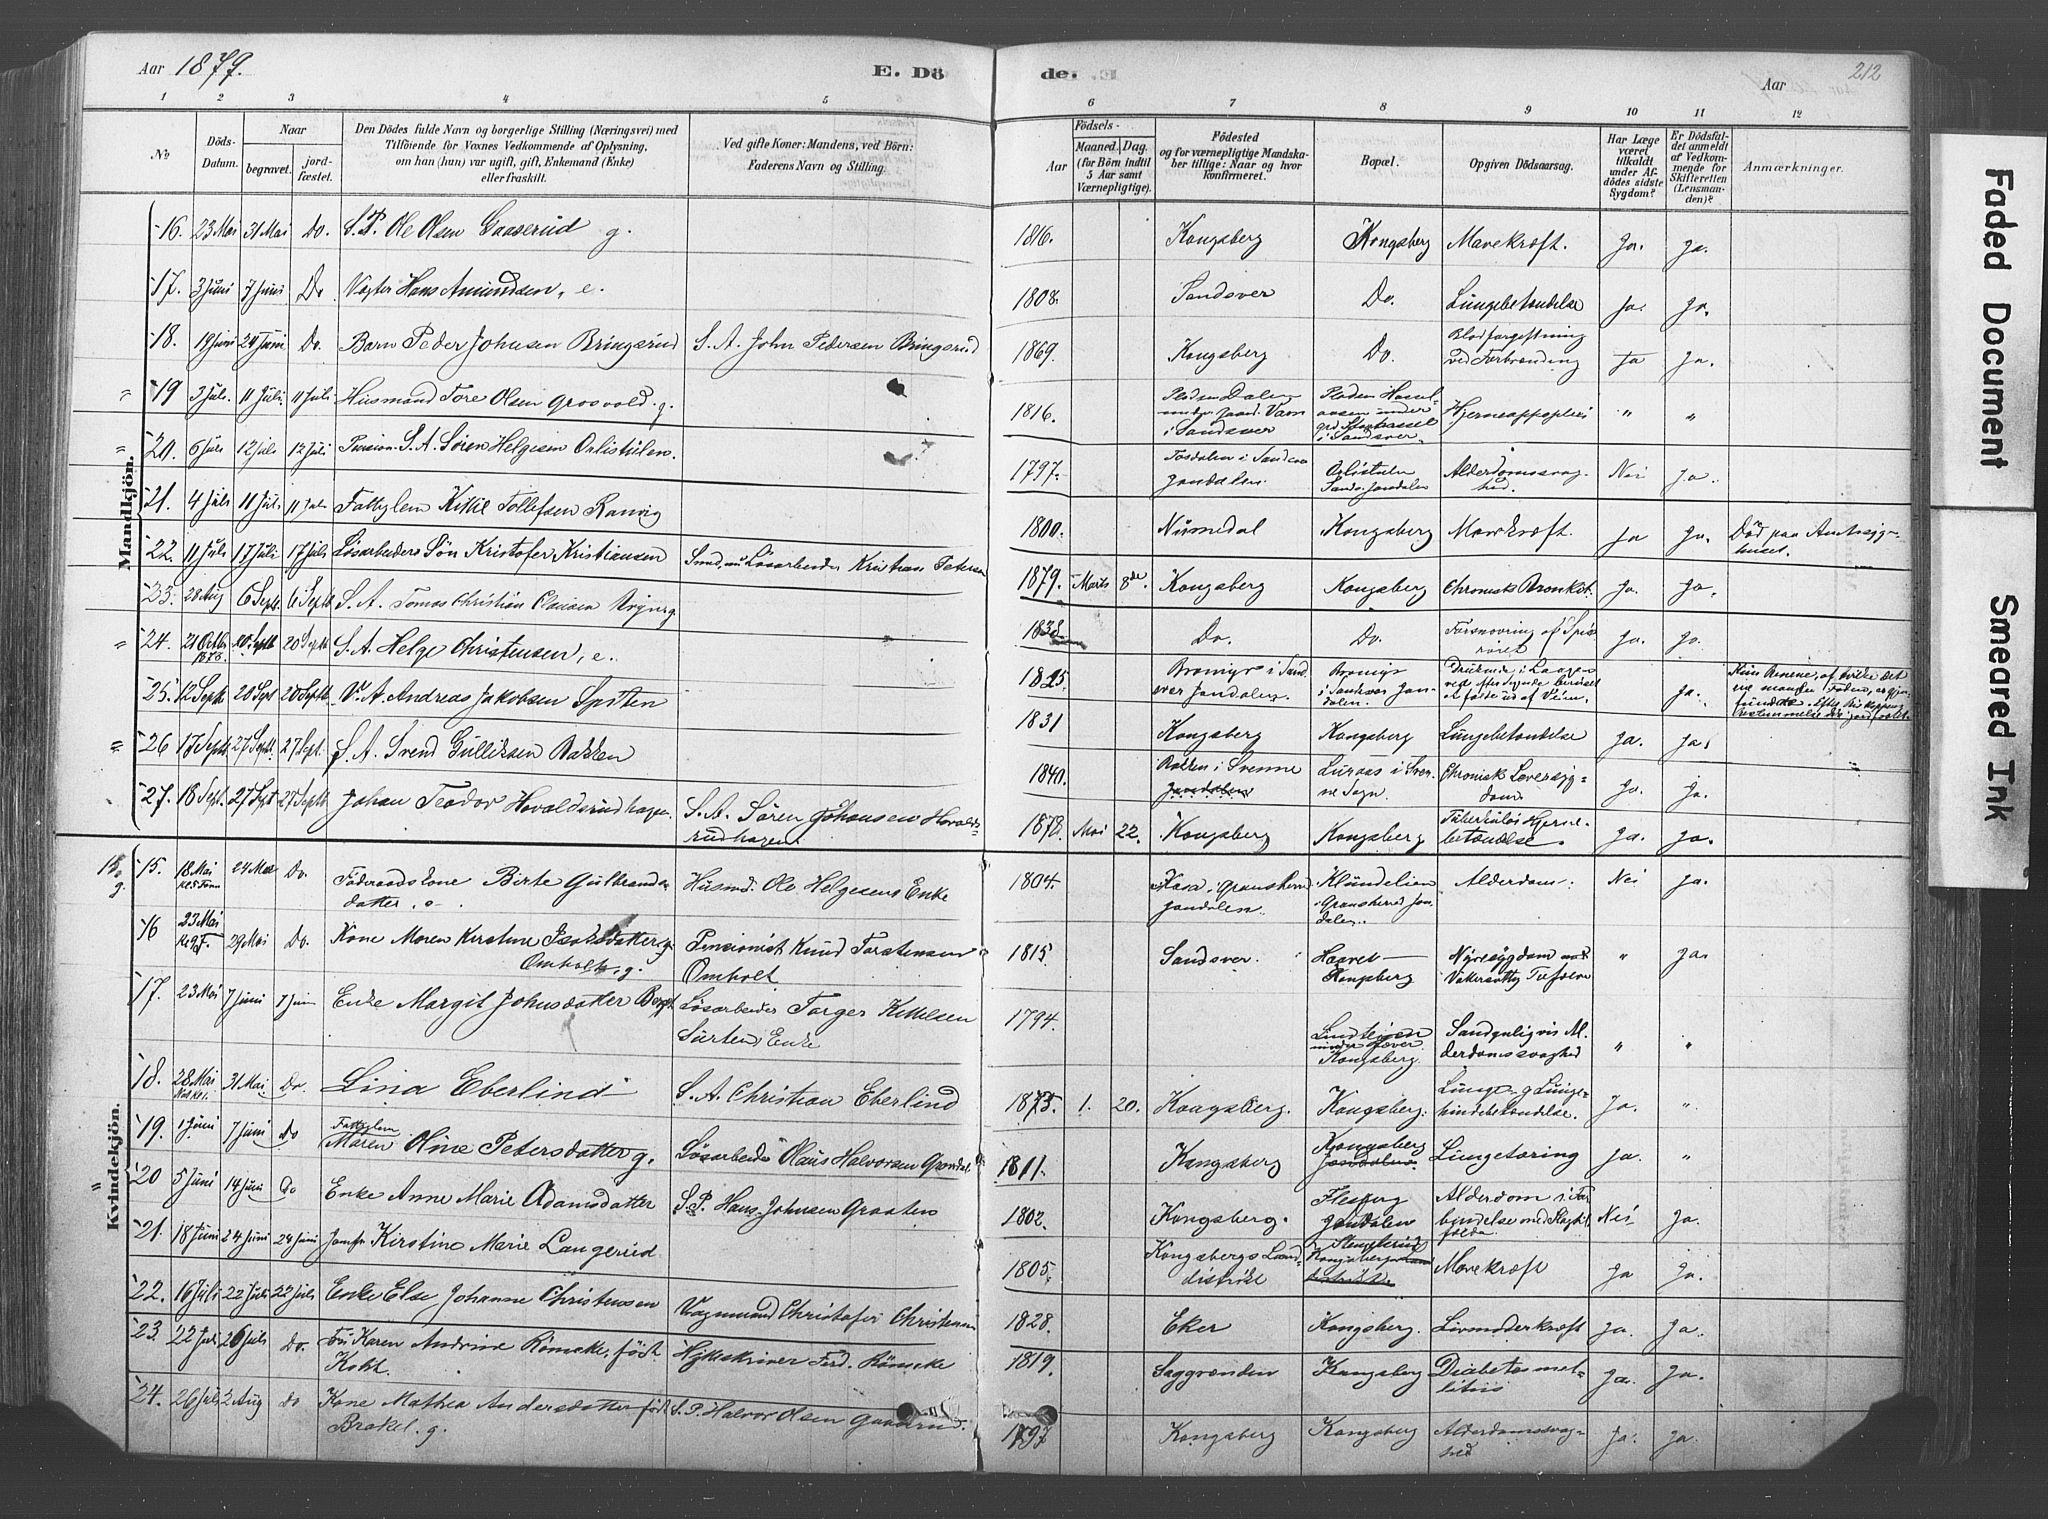 Aar 1879. E. Dö de. Aar 212
1 2 3 4 5 6 7 8 9 10 11 12
No
Döds-Datum.
Naar
begravet.
jord-fæstet.
Den Dödes fulde Navn og borgerlige Stilling (Næringsvei) med
Tilföiende for Voxnes Vedkommende af Oplysning,
om han (hun) var ugift, gift, Enkemand (Enke)
eller fraskilt.
Ved gifte Koner: Mandens, ved Börn:
Faderens Navn og Stilling.
Födsels-
Aar
Maaned. Dag.
(for Börn indtil
5 Aar samt
Værnepligtige).
Födested
og for værnepligtige Mandska-
ber tillige: Naar og hvor
konfirmeret.
Bopæl.
Opgiven Dödsaarsag.
Har Læge
været
tilkaldt
under Af-
dödes sidste
Sygdom?
Er Dödsfal-
det anmeldt
af Vedkom-
mende for
Skifteretten
(Lensman-
den)?
Anmærkninger.
Mandkjön.
16. 23 Mai 31 Mai Do. S. P. Ole Olsen Gaaserud g. 1816. Kongsberg Kongsberg Mavekræft. Ja. Ja.
17. 3 Juni 7 Juni Do Vægter Hans Amundsen, e. 1808. Sandsver Do. Lungebetændelse Ja. Ja.
18. 19 Juni 24 Juni Do. Barn Peder Johnsen Bringsrud S. A. John Pedersen Bringsrud 1869. Kongsberg Do. Blodforgiftning
ved Forbrænding Ja Ja.
19 3 Juli. 11 Juli. 11 Juli Husmand Tore Olsen Grosvold. g. 1816. Pladsen Dalen
under
i Sandsver Pladsen
under
i Sandsver. Hjerneapoplexi " "
20. 6 Juli 12 Juli 12 Juli Pension. S. A. Sören Helgesen Orlistulen. 1797. i Sandsver
Jondalen. Orlistulen
Jondalen Alderdomssvag-
hed. Nei Ja.
21. 4 Juli 11 Juli 11 Juli Fattiglem Kittil Tollefsen Ranvig 1800. Numedal Kongsberg Mavekræft. Ja Ja. Död paa Amtssyge-
huset.
22. 11 Juli 17 Juli 17 Juli Lösarbeiders Sön Kristofer Kristiansen Lösarbeider Kristian Petersen 1879. Marts 8de. Kongsberg Kongsberg Chronisk Bronkit. Ja. Ja
23. 28 Aug 6 Sept. 6 Septb S. A. Tomas Christian Clausen g. 1838. Do. Do. Forsnevring af Spise
röret Ja. Ja.
24. 21 Octbr
1878. 20 Septb 20 Septb S. A. Helge Christensen, e. 1825. i Sand
sver Jondalen.
i Sandsver Jon-
dalen. Druknede i Laagen Ja.
25. 12 Septb 20 Sept 20 Septb V. A Andreas Jakobsen Spiten 1831 Kongsberg Kongsberg Lungebetændelse Ja. Ja.
26 17 Septb 27 Septb. 27 Sept. S. A. Svend Gulliksen Bakken 1840. Bakken i Svenne
Jondalen Luraas i Sven-
ne Sogn. Chronisk Leversyg-
dom. Ja. Ja.
27. 18 Sept. 27 Sept 27 Septb Johan Teodor Hovaldsrudhagen S. A. Sören Johansen Hovalds-
rudhagen. 1878. Mai 22. Kongsberg Kongsberg Tuberkulös Hjerne-
betændelse. Ja. Ja.
Kvindekjön.
15. 18 Mai 24 Mai Do. Föderaadskone Birte Gulbrands-
datter. e. Husmd. Ole Helgesens Enke 1804. i Gransherred
Jondalen. Klundelien
i Gransherred Jon-
dalen. Alderdom. Nei Ja.
16 23 Mai 29 Mai Do Kone Maren Kirstine Isaksdatter g.
Omholt. g. Pensionist Knud Torstensen
Omholt. 1815. Sandsver. Haavet
Kongsberg Nyresygdom med
" Ja.
17. 23 Mai 7 Juni 7 Juni Enke Margit Johnsdatter Lösarbeider Torger Kittelsen
Enke 1794.
under
Kongsberg. Sandsynligvis Al-
derdomssvaghed " "
18. 28 Mai 31 Mai Do. Lina Eberlind S. A. Christian Eberlind 1875. 1. 20. Kongsberg. Kongsberg. Lunge- g Lunge-
hindebetændelse. Ja. "
19. 1 Juni 7 Juni Do Fattiglem
Maren Oline Petersdatter g. Lösarbeider Olaus Halvorsen 1811. Kongsberg Kongsberg
Jondalen Lungetæring Ja. "
20 5 Juni 14 Juni Do Enke Anne Marie Adamsdatter S. P. Hans Johnsen Graaten 1802. Kongsberg. Flesberg
Jondalen Alderdom i For
bindelse med Slagtil-
fælde Nei Ja.
21. 18 Juni 24 Juni 24 Juni Jomfr Kirstine Marie Langerud 1805. Kongsbergs Land
distrikt Mavekræft Ja Ja.
22. 16 Juli 22 Juli 22 Juli Enke Else Johanne Christensen Vognmand Christofer Christensen 1828. Eker Kongsberg. Livmoderkræft Ja. Ja.
23. 22 Juli 26 Juli Do. Fru Karen Andrine Römcke, födt
Koht. Hyttskriver Ferd. Römcke 1819. Saggrænden Kongsberg Diabetes mel-
litus Ja. Ja.
24. 26 Juli 2 Aug do Kone Mathea Andersdatter födt
Brakel. g. S. P. Halvor Olsen 1797 Kongsberg Kongsberg Alderdomssvag-
hed Ja. Ja.
Faded Document
Smeared Ink